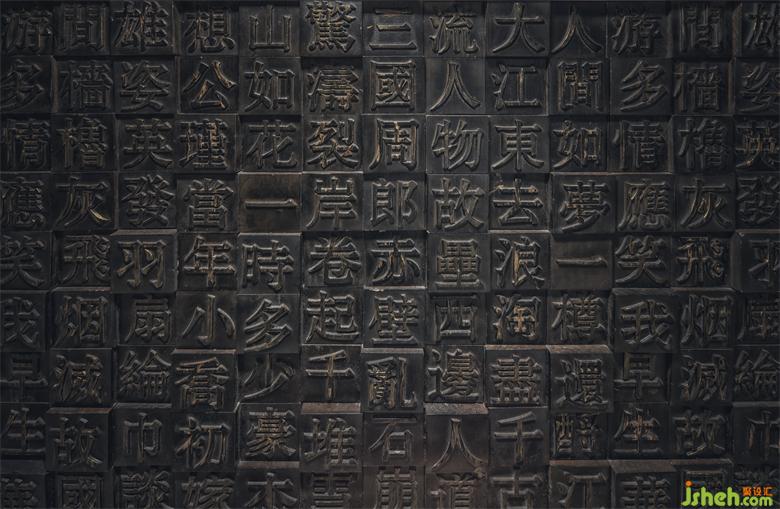 雄姿英發羽扇綸巾談
間檣櫓灰飛烟滅故國
游多情應笑我早生華
人間如夢一樽還酹江
大江東去浪淘盡千古
流人物故壘西邊人道
三國周郎赤壁亂石崩
驚濤裂岸卷起千堆雪
山如花一時多少豪
想公瑾當年小喬初嫁
雄姿英發羽扇綸巾談
間檣櫓灰飛烟滅故國
游多情應笑我早生華
jsheh.com
聚设汇